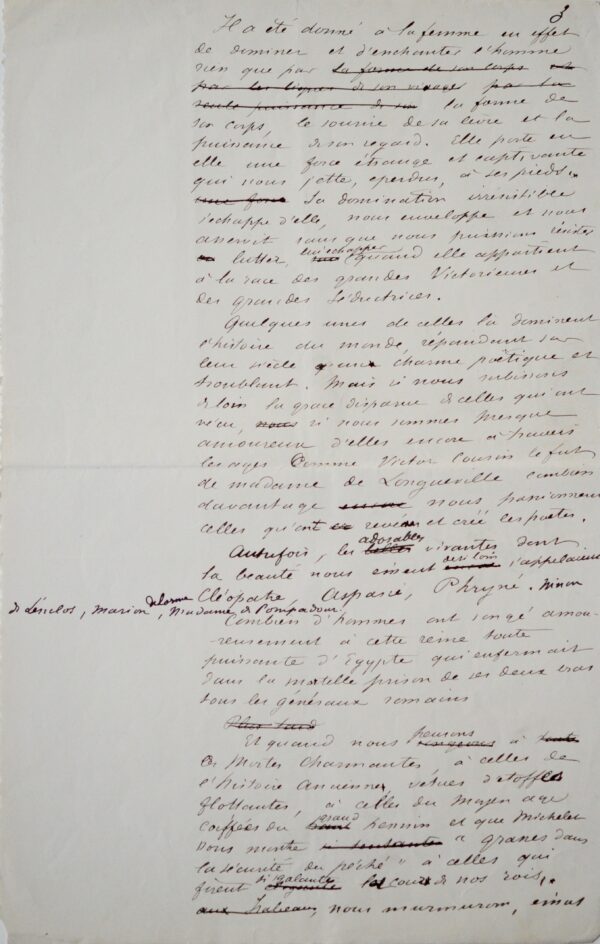 3
Il a été donné à la femme en effet
de dominer et d'enchanter l'homme
rien que par la forme de son corps et
par les lignes de son visage par la
seule puissance de son la forme de
son corps, le sourire de sa lèvre et la
puissance de son regard. Elle porte en
elle une force étrange et captivante
qui nous jette, éperdus, à ses pieds.
une force Sa domination irrésistible
s'échappe d'elle, nous enveloppe et nous
asservit sans que nous puissions résister
lutter, lui échapper quand elle appartient
à la race des grandes Victorieuses et
des grandes Séductrices.
Quelques unes de celles là dominent
l'histoire du monde, répandent sur
leur siècle un charme poétique et
troublant. Mais si nous subissons
de loin la grace disparue de celles qui ont
vécu, nous si nous sommes presque
amoureux d'elles encore à travers
les ages comme Victor Cousin le fut
de madame de Longueville combien
davantage encore nous passionnent
celles qu'ont rêvées et créé les poetes.
Autrefois, les belles adorables vivantes dont
la beauté nous émeut de si loin s'appelaient
Cléopatre, Aspasie, Phryné. Ninon
de Lenclos, Marion delorme, Madame de Pompadour.
Combien d'hommes ont songé amou-
reusement à cette reine toute
puissante d'Egypte qui enfermait
dans la mortelle prison de ses deux bras
tous les généraux romains
Plus tard
Et quand nous songeons pensons à toute
ces Mortes Charmantes, à celles de
l'histoire Ancienne, vêtues d'étoffes
flottantes, à celles du moyen age
coiffées du haut grand hennin et que Michelet
nous montre si "graves dans
la sécurité du péché" à celles qui
firent si galante la cour de nos rois,
nous murmurons, émus